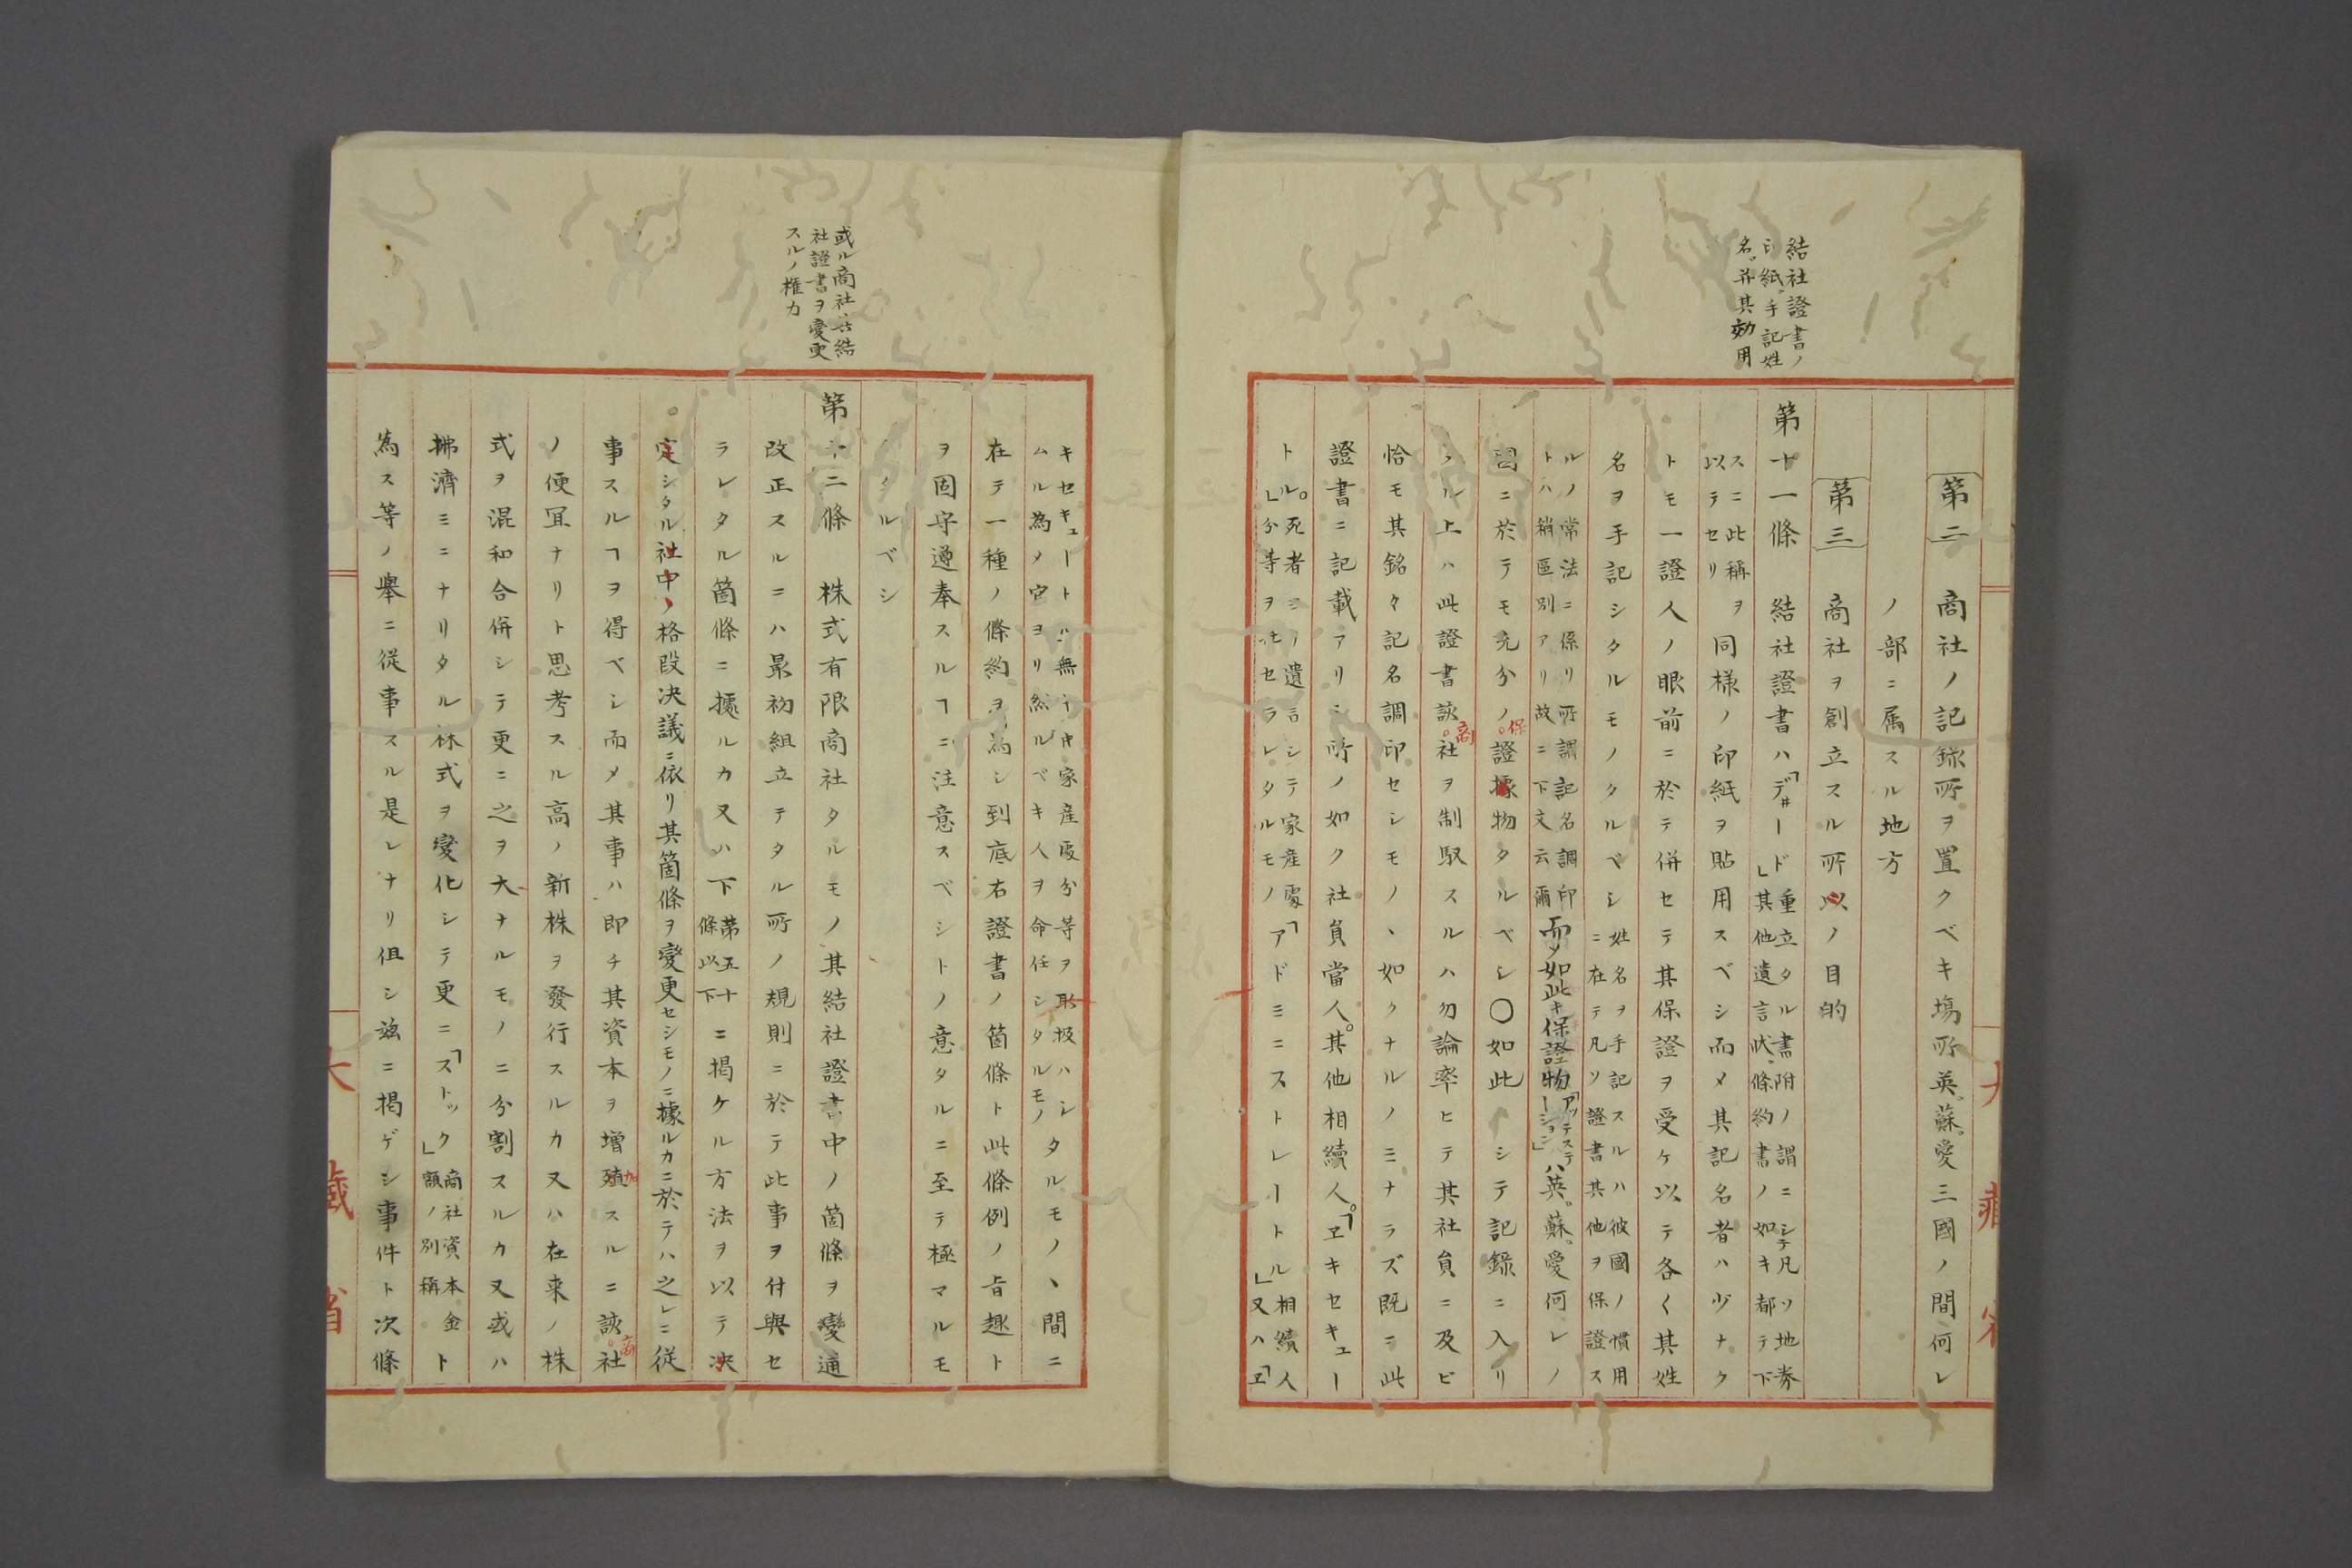 結社證書ノ
印紙。手記姓
名。并其効用
第二 商社ノ記録所ヲ置クベキ塲所英。蘇。愛三國ノ間何レ
ノ部ニ属スル地方
第三 商社ヲ創立スル所以ノ目的
第十一條 結社證書ハ「デㇶード」重立タル書附ノ謂ニシテ凡ソ地券
其他遺言狀。條約書ノ如キ都テ下
スニ此稱ヲ
以テセリ
同様ノ印紙ヲ貼用スベシ而メ其記名者ハ少ナク
トモ一證人ノ眼前ニ於テ併セテ其保證ヲ受ケ以テ各〱其姓
名ヲ手記シタルモノタルベシ姓名ヲ手記スルハ彼國ノ慣用
ニ在テ凡ソ證書其他ヲ保證ス
ルノ常法ニ係リ所謂記名調印
トハ稍區別アリ故ニ下文云爾
而メ如此キ保證物「アッテステーション」ハ英。蘇。愛何レノ
國ニ於テモ充分ノ保證物タルベシ〇如此シテ記錄ニ入リ
タル上ハ此證書該商社ヲ制馭スルハ勿論率ヒテ其社員ニ及ビ
恰モ其銘々記名調印セシモノヽ如クナルノミナラズ既ニ此
證書ニ記載アリシ所ノ如ク社員當人。其他相續人。「ヱキセキュー
トル。」死者ニノ遺言シテ家産處
分等ヲ任セラレタルモノ
「アドミニストレートル」相續人
又ハ「ヱ
キセキュートハ無キ中家産處分等ヲ取扱ハシ
ムル為メ官ヨリ然ルベキ人ヲ命任シタルモノ
タルモノヽ間ニ
在テ一種ノ條約ヲ為シ到底右證書ノ箇條ト此條例ノ旨趣ト
ヲ固守遵奉スルヿニ注意スベシトノ意タルニ至テ極マルモ
ノタルベシ
或ル商社其結
社證書ヲ變更
スルノ權力
第十二條 株式有限商社タルモノ其結社證書中ノ箇條ヲ變通
改正スルニハ最初組立テタル所ノ規則ニ於テ此事ヲ付與セ
ラレタル箇條ニ據ルカ又ハ下第五十
條以下ニ掲ケル方法ヲ以テ決
定シタル社中ノ格段決議ニ依リ其箇條ヲ變更セシモノニ據ルカニ於テハ之レニ從
事スルヿヲ得ベシ而メ其事ハ即チ其資本ヲ增加スルニ該商社
ノ便冝ナリト思考スル高ノ新株ヲ發行スルカ又ハ在来ノ株
式ヲ混和合併シテ更ニ之ヲ大ナルモノニ分割スルカ又或ハ
拂濟ミニナリタル株式ヲ變化シテ更ニ「ストック」商社資本金
額ノ別稱
ト
為ス等ノ擧ニ従事スル是レナリ但シ茲ニ掲ゲシ事件ト次條
大藏省